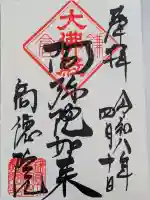 奉拝
令和六年
四月十日
大佛殿
阿弥陀如来
高德院